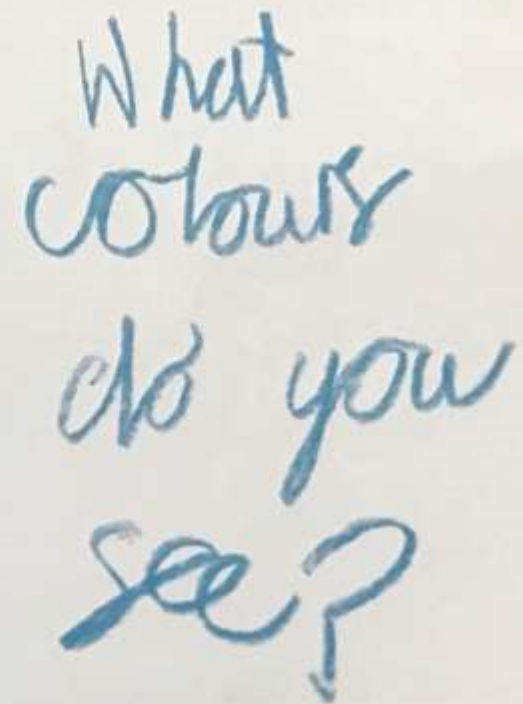 What
colours
do you
see?